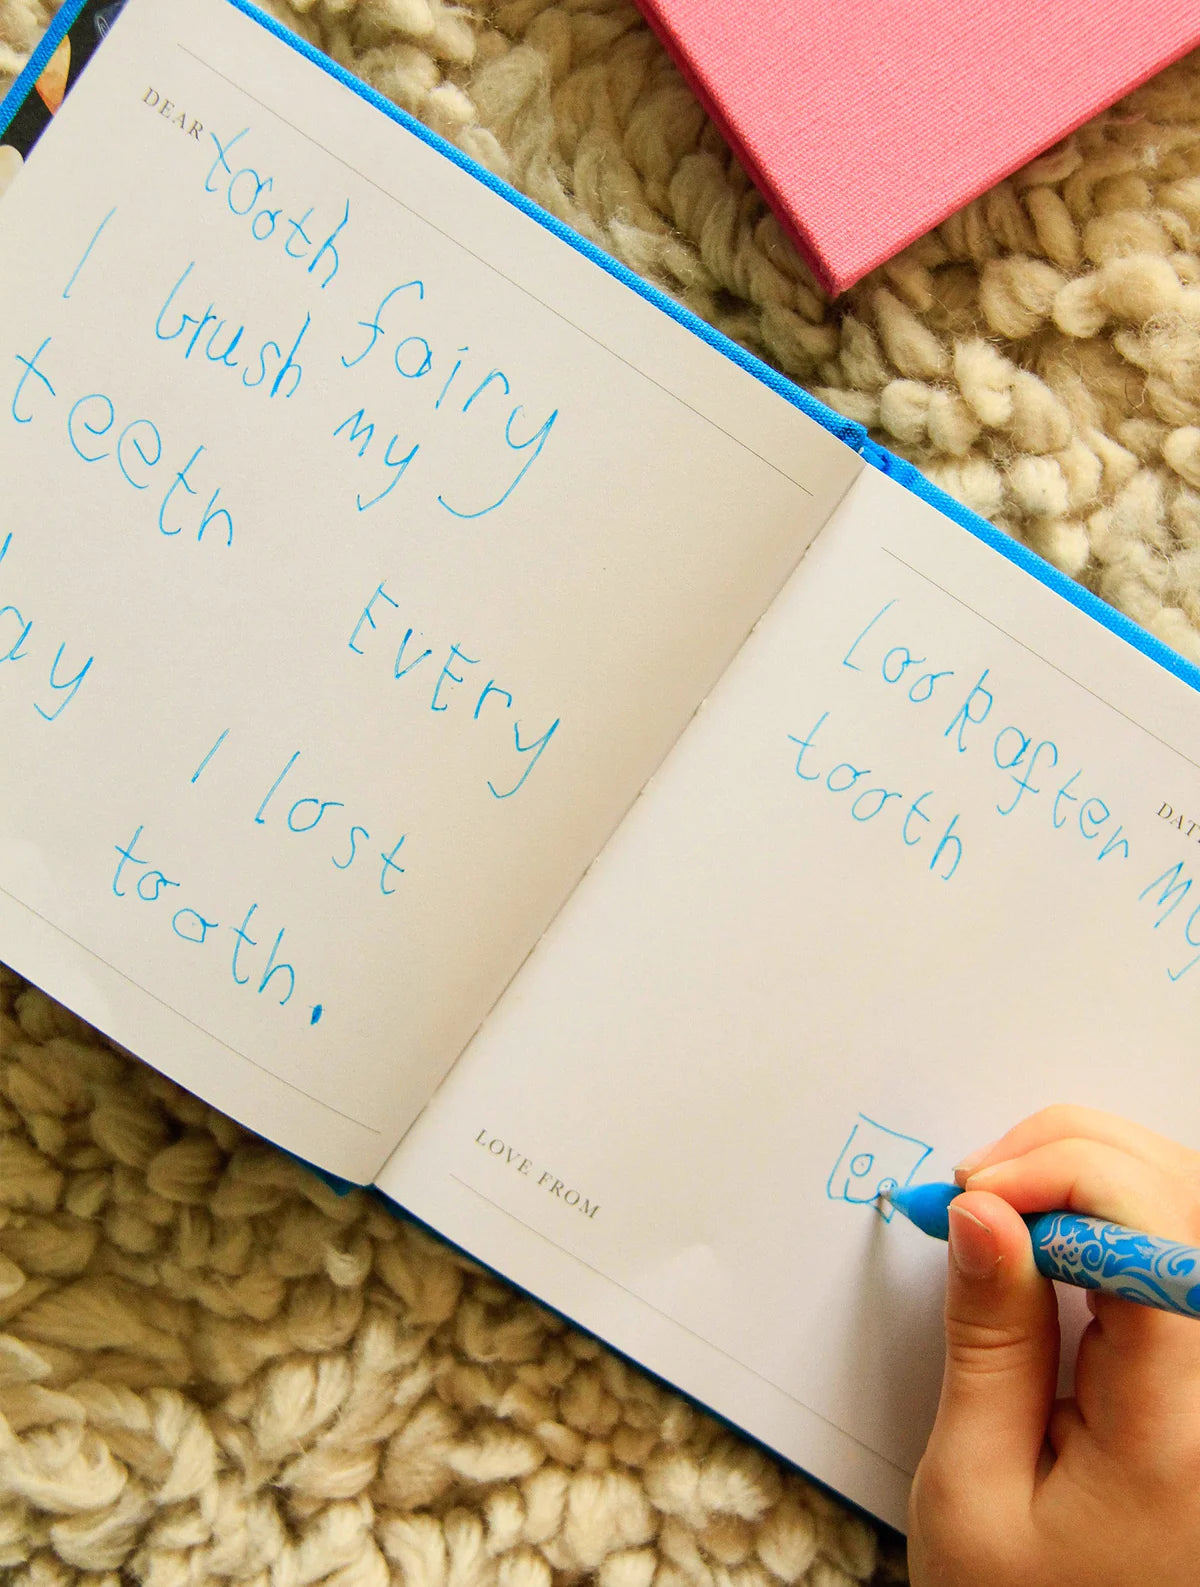 DEAR tooth fairy
I brush my
teeth Every
day
I lost
tooth.
Look after my
tooth
DATE
LOVE FROM